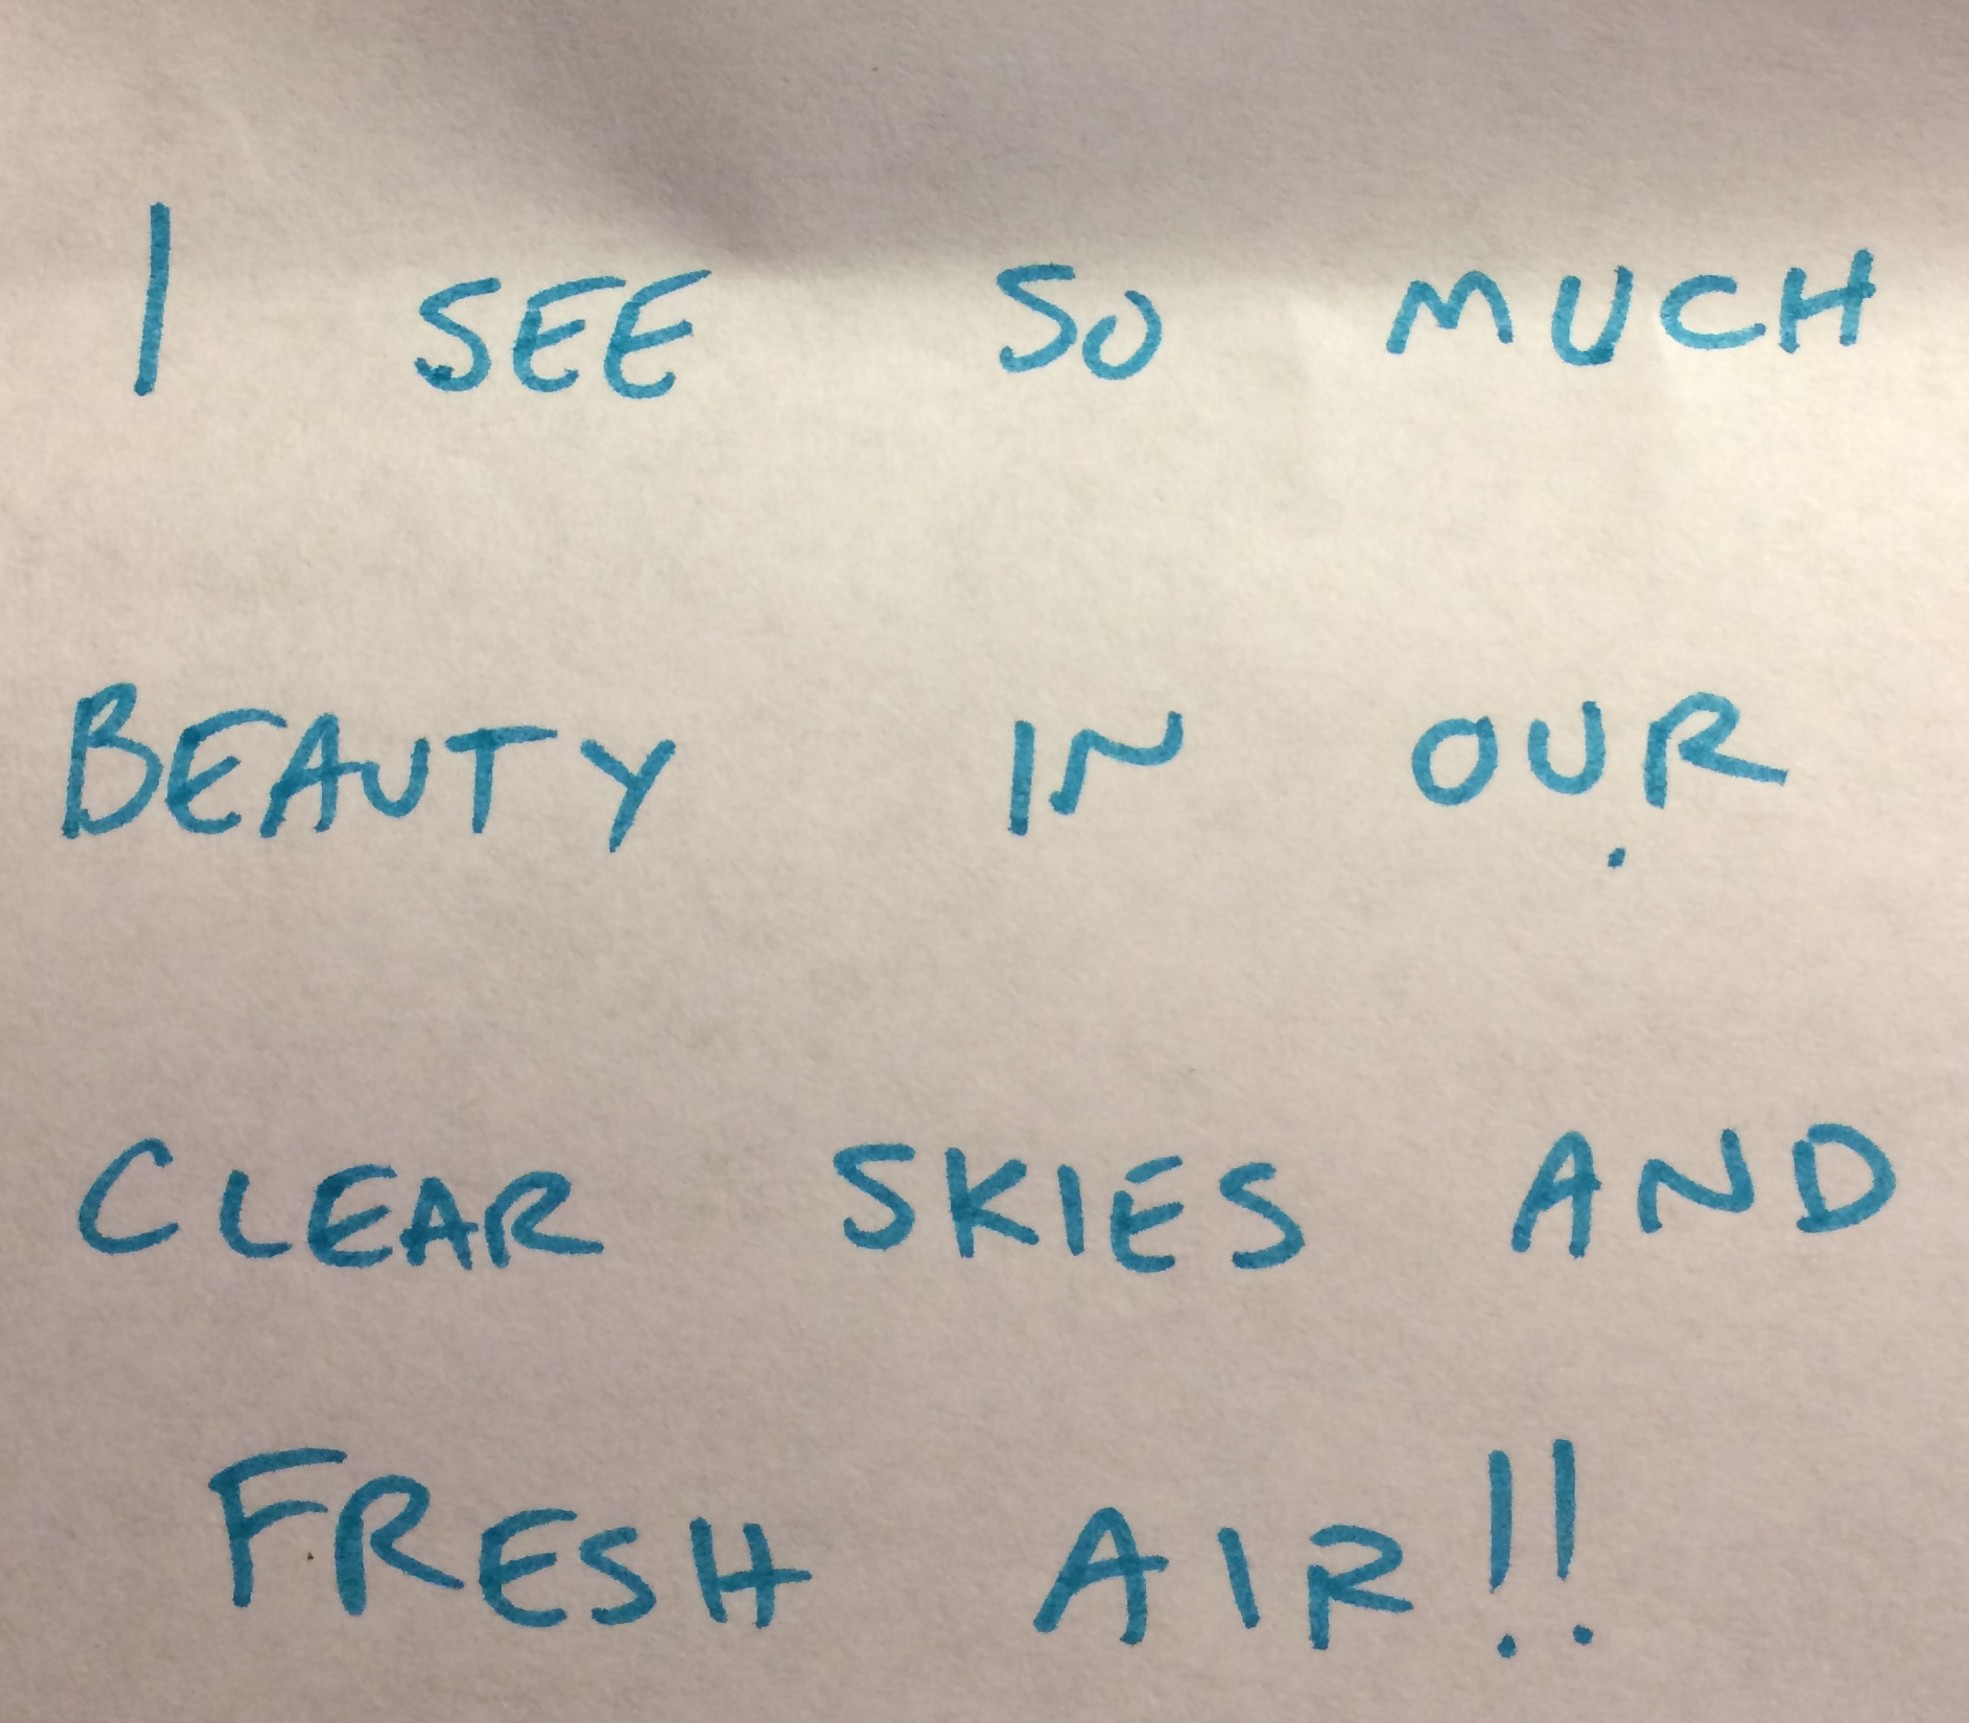 I SEE SO MUCH
BEAUTY IN OUR
CLEAR SKIES AND
FRESH AIR!!